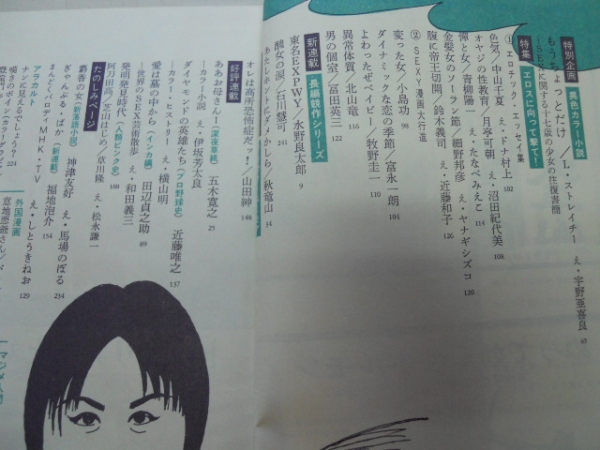 特別企画 異色カラー小説
もうちょっとだけ／L・ストレイチー え・宇野亜喜良 65
―SEXに関する十七歳の少女の往復書簡
特集 エロスに向って撃て!
①エロチック・エッセイ集
色気／中山千夏 え・ドナ村上 102
オヤジの性教育／月亭可朝 え・沼田紀代美 108
禅と女／青柳陽一 え・たなべみえこ 114
金髪女のソーラン節／細野邦彦 え・ヤナギシズコ 120
腹に帝王切開／鈴木義司 え・近藤和子 126
②SEXY漫画大行進
変った女／小島功 98
ダイナミックな恋の季節／富永一朗 104
よわったぜベイビー／牧野圭一 110
異常体質／北山竜 116
男の個室／冨田英三 122
新連載 長編競作シリーズ
東名EXPWY／水野良太郎 9
醜女の涙／石川慧可 241
あそしポットにダメかしら／秋竜山 34
オレは高所恐怖症だッ!／山田紳 148
好評連載
ああお母さんー!〈深夜草紙〉 五木寛之 25
―カラー小説 え・伊坂芳太良
ダイヤモンドの英雄たち〈プロ野球史〉 近藤唯之 137
―カラー・ヒストリー え・横山明
愛は墓の中から〈インカ編〉 田辺貞之助 89
―世界のSEX芸術散歩 え・和田義三
発明発見時代〈人類ピンク史〉 168
阿刀田高／芝山はじめ／草川隆 え・松永謙一
たのしみページ
麝香の女〈新落語小説〉 神津友好 え・馬場のぼる 234
ぎゃんぶる・ばか〈新連載〉 福地泡介 154
まんてくパロディMHK・TV え・しとうきねお 129
アラカルト
ナンに見えるでしょう? 224
外国漫画